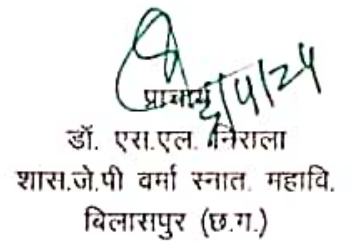 प्राचार्य
डॉ. एस.एल. निराला
शास.जे.पी वर्मा स्नात. महावि.
बिलासपुर (छ.ग.)